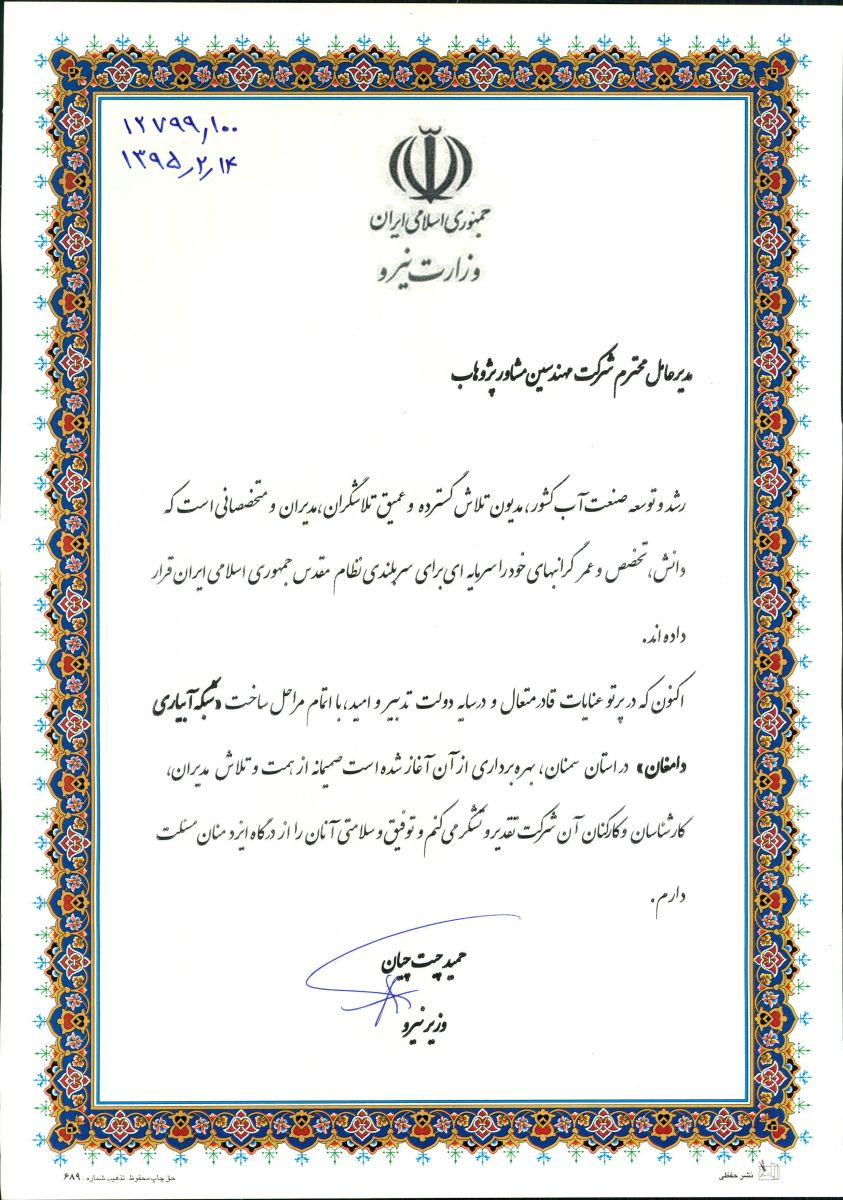 ۱۲۷۹۹٫۱۰۰
۱۳۹۵٫۲٫۱۴
جمهوری اسلامی ایران
وزارت نیرو
مدیرعامل محترم شرکت مهندسین مشاور پژوهاب
رشد و توسعه صنعت آب کشور، مدیون تلاش گسترده و عمیق تلاشگران، مدیران و متخصصانی است که
دانش، تخصص و عمر گرانبهای خود را سرمایه ای برای سربلندی نظام مقدس جمهوری اسلامی ایران قرار
داده اند.
اکنون که در پرتو عنایات قادر متعال و در سایه دولت تدبیر و امید، با اتمام مراحل ساخت «شبکه آبیاری
دامغان» در استان سمنان، بهره برداری از آن آغاز شده است صمیمانه از همت و تلاش مدیران،
کارشناسان و کارکنان آن شرکت تقدیر و تشکر می کنم و توفیق و سلامتی آنان را از درگاه ایزد منان مسئلت
دارم.
حمید چیت چیان
وزیر نیرو
نشر حفظی
حق چاپ محفوظ. تذهیب شماره ۶۸۹۰